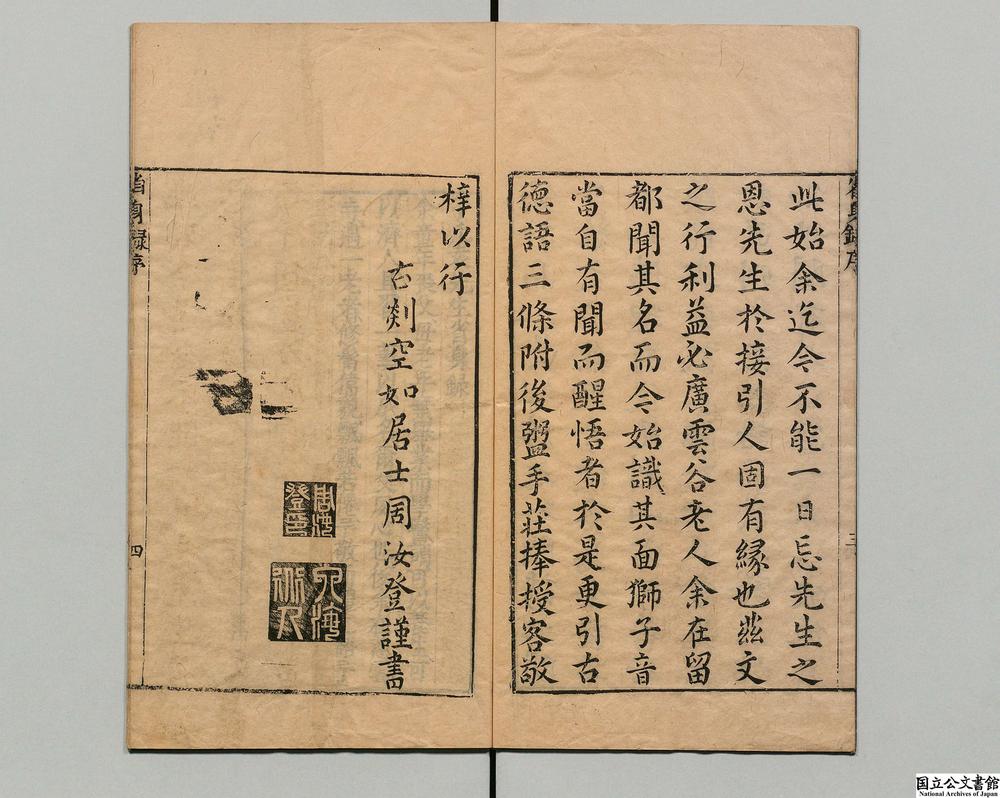 此始余迄今不能一日忘先生之
恩先生於接引人固有緣也茲文
之行利益必廣雲谷老人余在留
都聞其名而今始識其面獅子音
當自有聞而醒悟者於是更引古
德語三條附後盥手莊捧授客敬
三
省身錄序
梓以行
古剡空如居士周汝登謹書
周汝登印
四
国立公文書館
National Archives of Japan